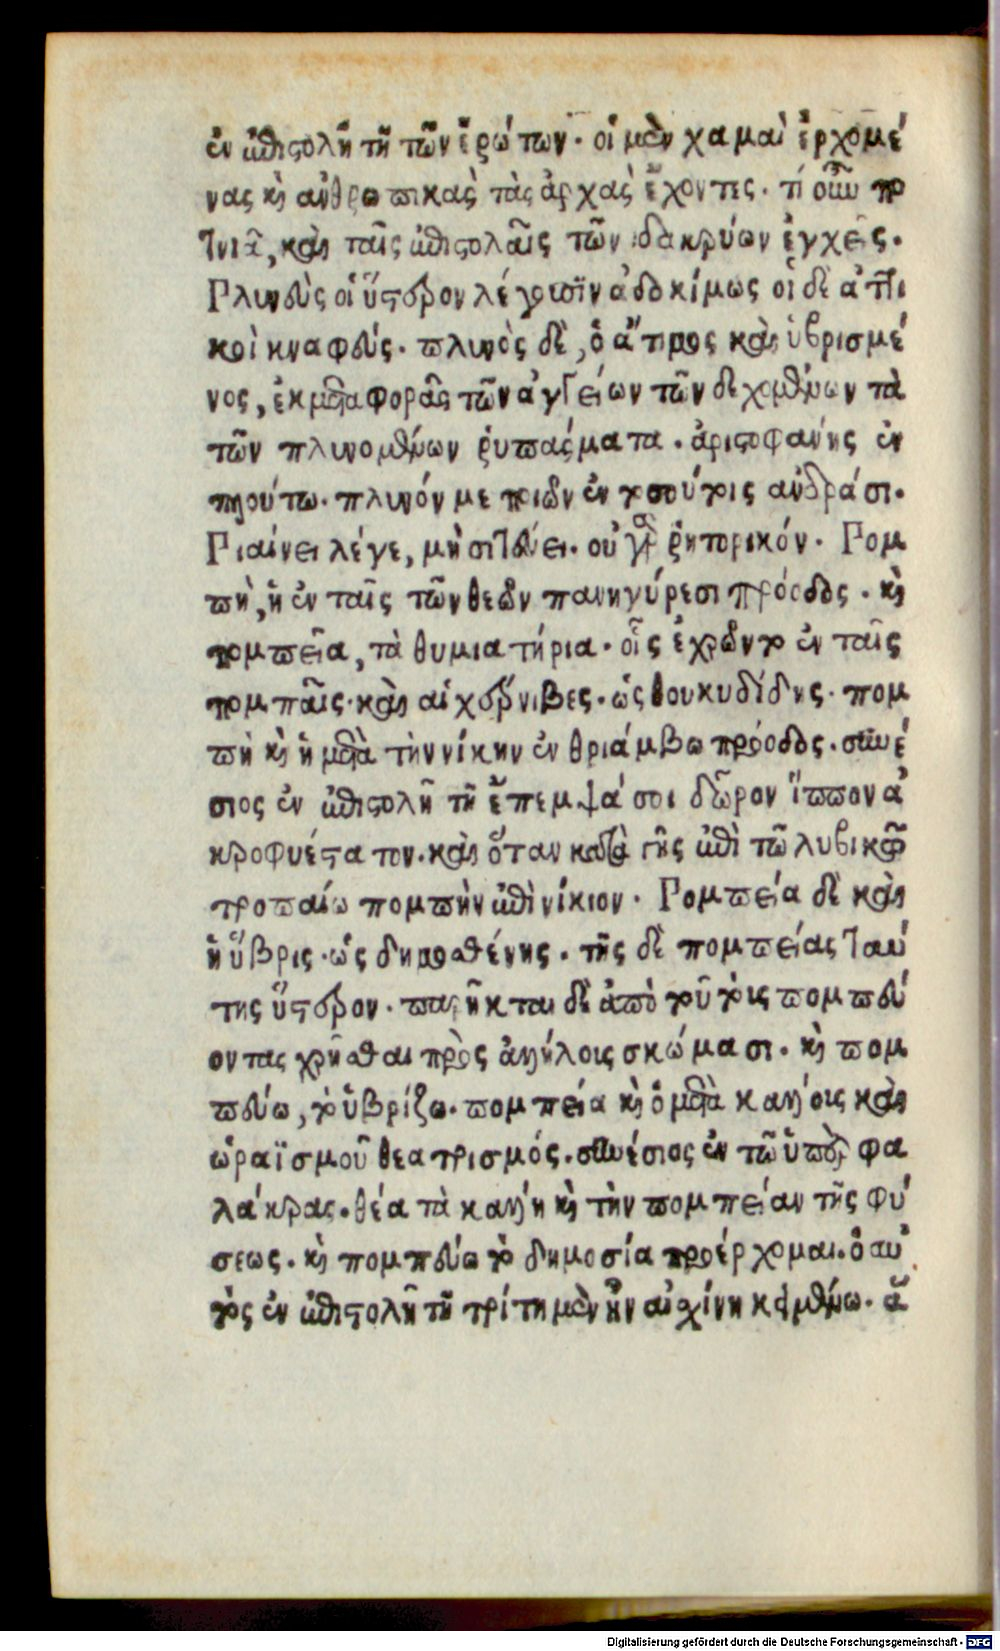 ἐν ἐπιστολῆ τῆ τῶν ἐρώτων· οἱ μὲν χαμαὶ ἐρχομέ
νας κὴ ἀνθρωπικὰς τὰς ἀρχὰς ἔχοντες. τί οὖν
καὶ ταῖς ἐπιστολαῖς τῶν δακρύων ἐγχεῖς.
Πλυνεὺς οἱ ὕστερον λέγουσιν ἀδοκίμως οἱ δὲ ἀττι
κοὶ κναφεύς. πλυνὸς δὲ, ὁ ἄτιμος καὶ ὑβρισμέ
νος, ἐκ μεταφορᾶς τῶν ἀγγείων τῶν δεχομένων τὰ
τῶν πλυνομένων ῥυπάσματα. ἀριστοφάνης ἐν
πλούτω. πλυνόν με ποιῶν ἐν τοσούτοις ἀνδράσι.
Πιαίνει λέγε, μὴ σιτεύει. οὐ γὰρ ῥητορικόν. Πομ
πὴ, ἡ ἐν ταῖς τῶν θεῶν πανηγύρεσι πρόοδος. κὴ
πομπεῖα, τὰ θυμιατήρια. οἷς ἐχρῶντο ἐν ταῖς
πομπαῖς. καὶ αἱ χέρνιβες. ὡς θουκυδίδης. πομ
πὴ κὴ ἡ μετὰ τὴν νίκην ἐν θριάμβω πρόοδος. συνέ
σιος ἐν ἐπιστολῆ τῆ ἔπεμψά σοι δῶρον ἵππον ἀ
κροφυέστατον. καὶ ὅταν κατὰ γῆς ἐπὶ τῶ λυβικῶ
τροπαίω πομπὴν ἐπὶ νίκιον. Πομπεία δὲ καὶ
ἡ ὕβρις. ὡς δημοσθένης. τῆς δὲ πομπείας ταύ
της ὕστερον. παρῆκται δὲ ἀπὸ τοῦ τοὺς πομπεύ
οντας χρῆσθαι πρὸς ἀλλήλοις σκώμασι. κὴ πομ
πεύω, τὸ ὑβρίζω. πομπεία κὴ ὁ μετὰ κάλλους καὶ
ὡραϊσμοῦ θεατρισμός. συνέσιος ἐν τῶ ὑπὲρ φα
λάκρας. θέα τὰ κάλλη κὴ τὴν πομπείαν τῆς φύ
σεως. κὴ πομπεύω τὸ δημοσία προέρχομαι. ὁ αὐ
τὸς ἐν ἐπιστολῆ τῆ τρίτη μὲν ἦν αἰσχίνη κειμένω. ἅ
Digitalisierung gefördert durch die Deutsche Forschungsgemeinschaft - DFG